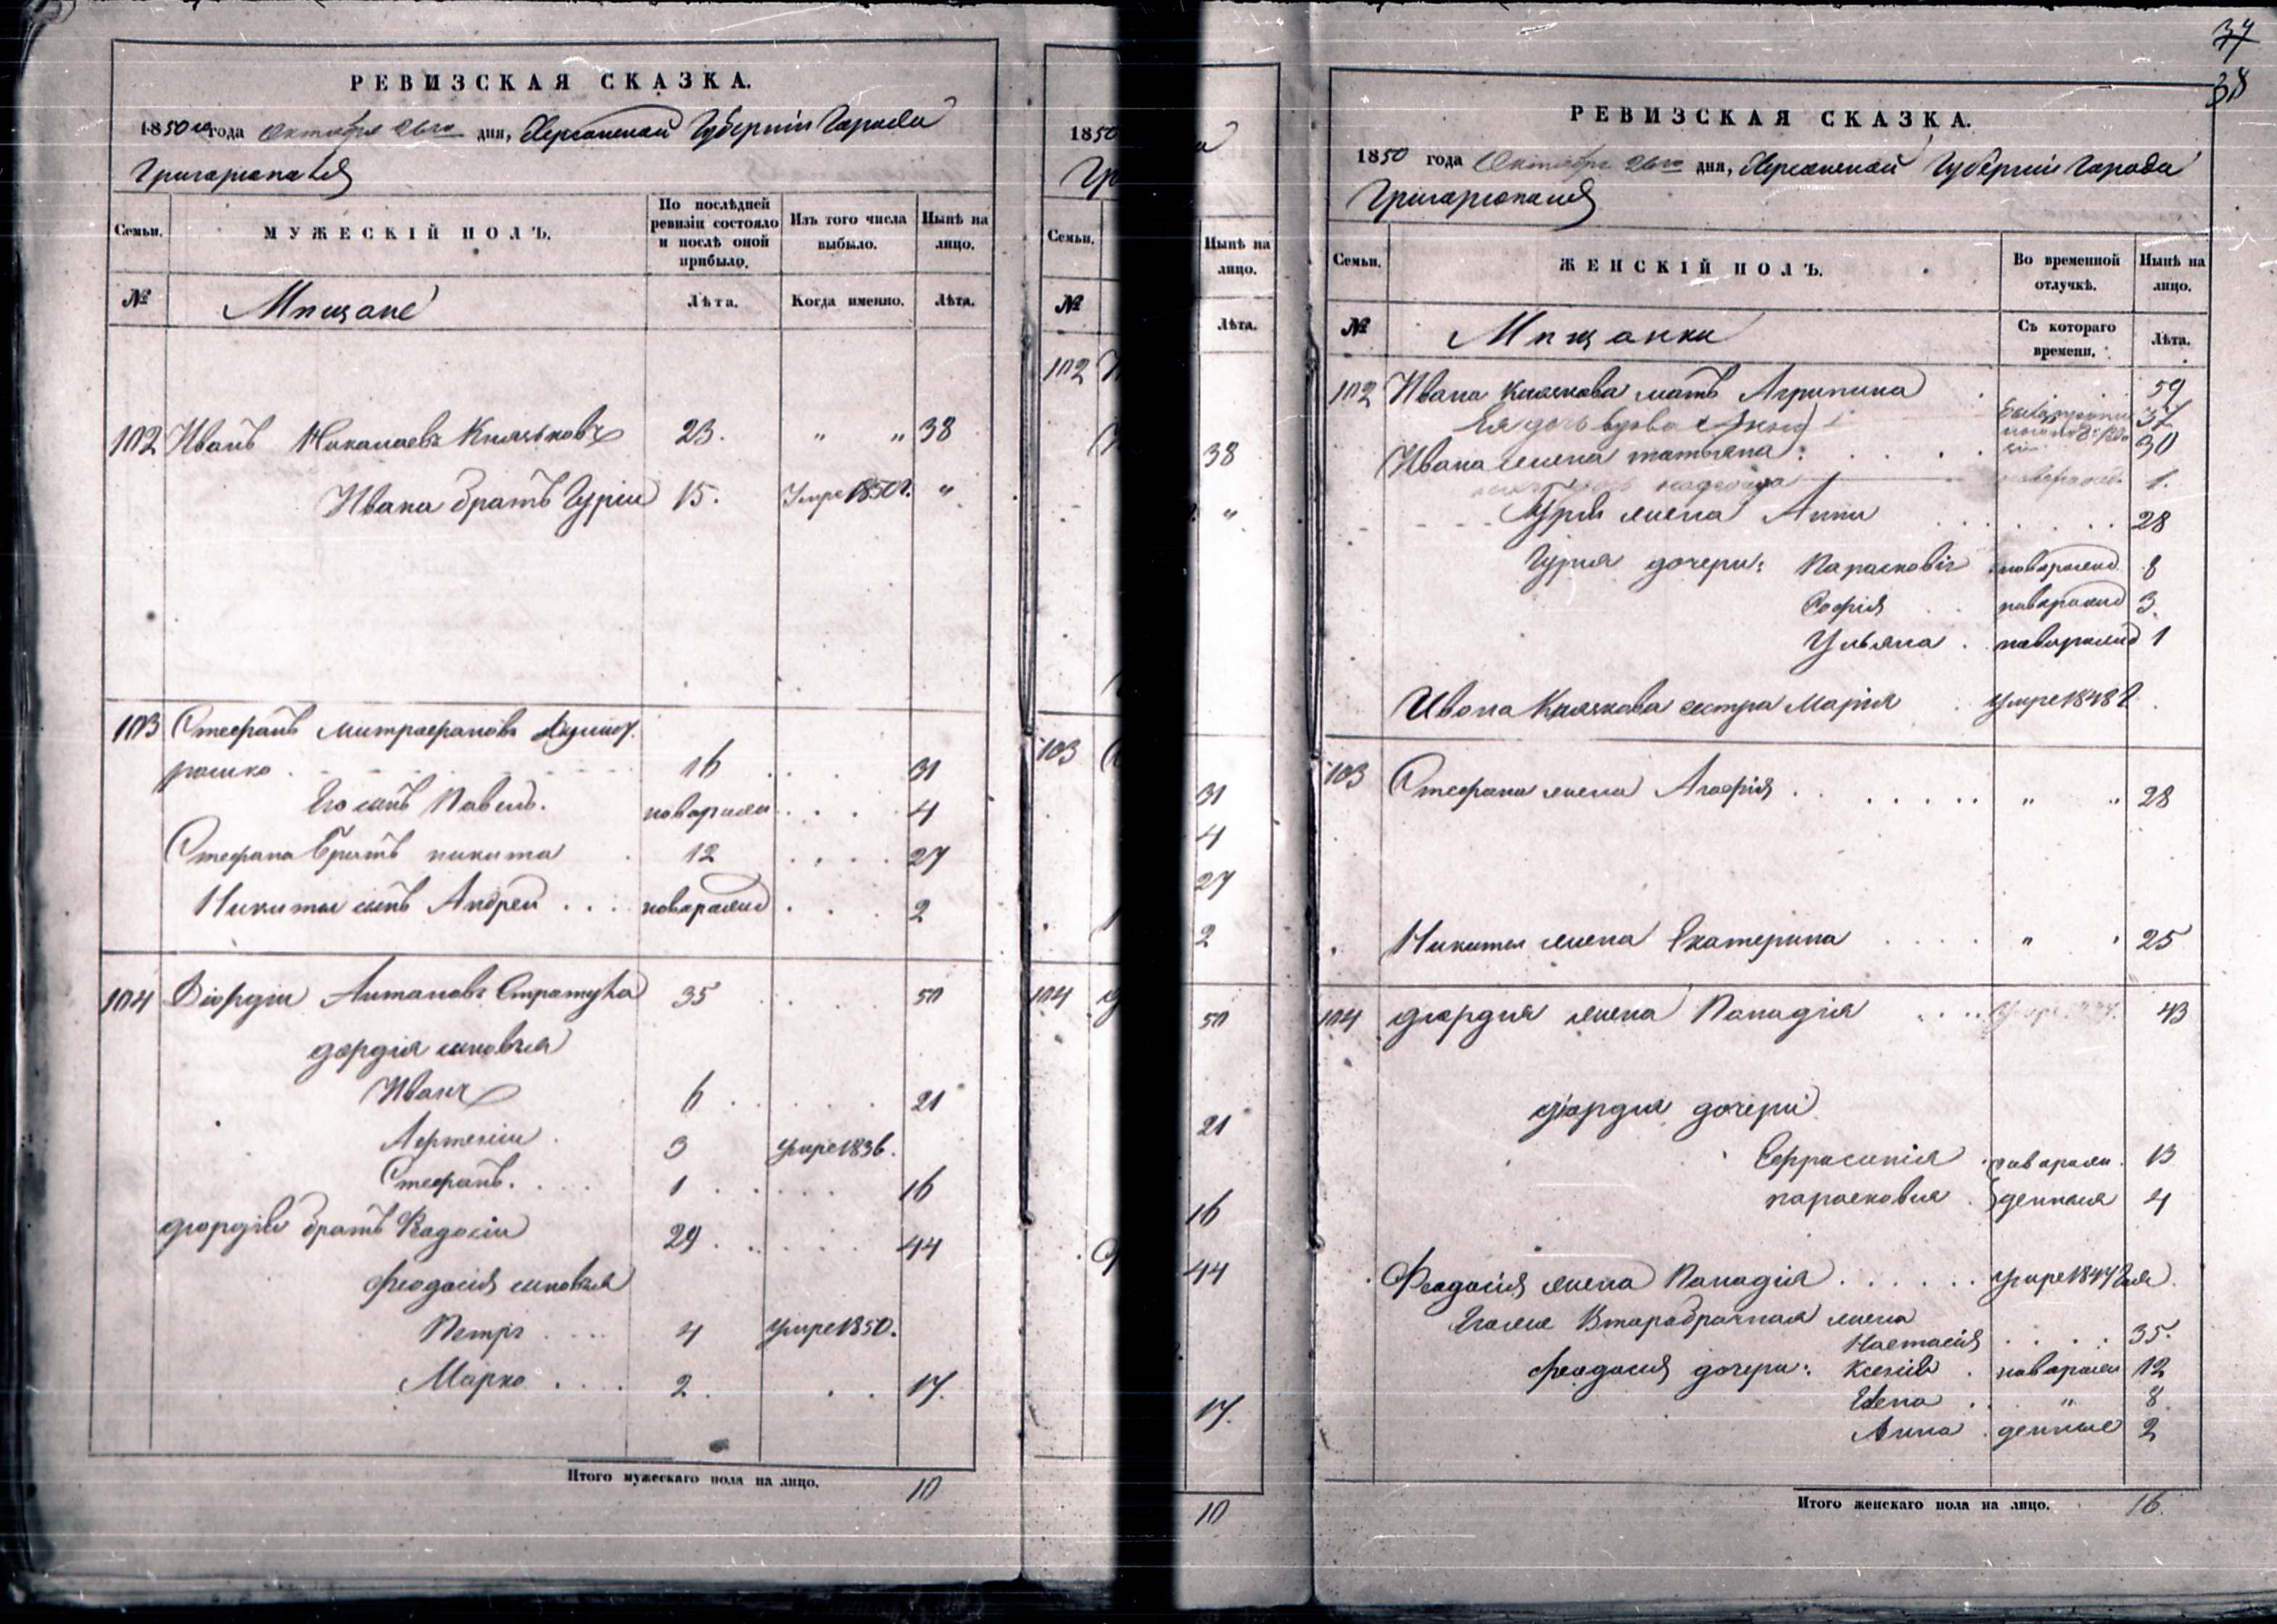 РЕВИЗСКАЯ СКАЗКА.
1850го года Октября 26го дня, Херсонской Губернiи Города
Григорiополя
Семьи.
МУЖЕСКIЙ ПОЛЪ.
По послѣдней ревизiи состояло и послѣ оной прибыло.
Изъ того числа выбыло.
Нынѣ на лицо.
№
Мищане
Лѣта.
Когда именно.
Лѣта.
102 Иванъ Николаевъ Княньковъ 23. " " 38
Ивана братъ Гурiй 15. Умре 1850г. "
103 Стефанъ Митрофановъ
16 31
Его сынъ Павелъ. новорожд 4
Стефана братъ никита 12 27
Никиты сынъ Андрей новорожд 2
104 Дiордiй Антоновъ Стратула 35 50
дiордiя сыновья
Иванъ 6 21
3 умре 1836.
Стефанъ. 1 16
дiордiя братъ Феодосiй 29 44
Феодосiя сыновья
Петръ 4 умре 1850.
Марко 2 17.
Итого мужескаго пола на лицо. 10
1850
Гр
Семьи.
№
102
103
104
Нынѣ на лицо.
Лѣта.
38
"
31
4
27
2
50
21
16
44
17.
10
37
38
РЕВИЗСКАЯ СКАЗКА.
1850 года Октября 26го дня, Херсонской Губернiи Города
Григорiополя
Семьи.
ЖЕНСКIЙ ПОЛЪ.
Во временной отлучкѣ.
Нынѣ на лицо.
№
Мищанки
Съ котораго времени.
Лѣта.
102 Ивана Княнкова мать Агрипина 59
Ея дочь вдова 37
Ивана жена татьяна: 30
надежда новорожд. 1.
Гурiя жена Анна 28
Гурiя дочери: Парасковiя новорожд. 8
Софiя новорожд 3.
Ульяна новорожд 1
Ивана Княнкова сестра Марiя умре 1848 г.
103 Стефана жена Агафiя " " 28
Никиты жена Екатерина " " 25
104 дiордiя жена Панадiя 43
дiордiя дочери
Ефросинiя новорож. 13
парасковiя денныя 4
Феодосiя жена Панадiя умре 1847 года.
Его же Второбрачная жена
Настасiя 35.
Феодосiя дочери: Ксенiя новорож 12
Елена " 8
Анна денные 2
Итого женскаго пола на лицо. 16.